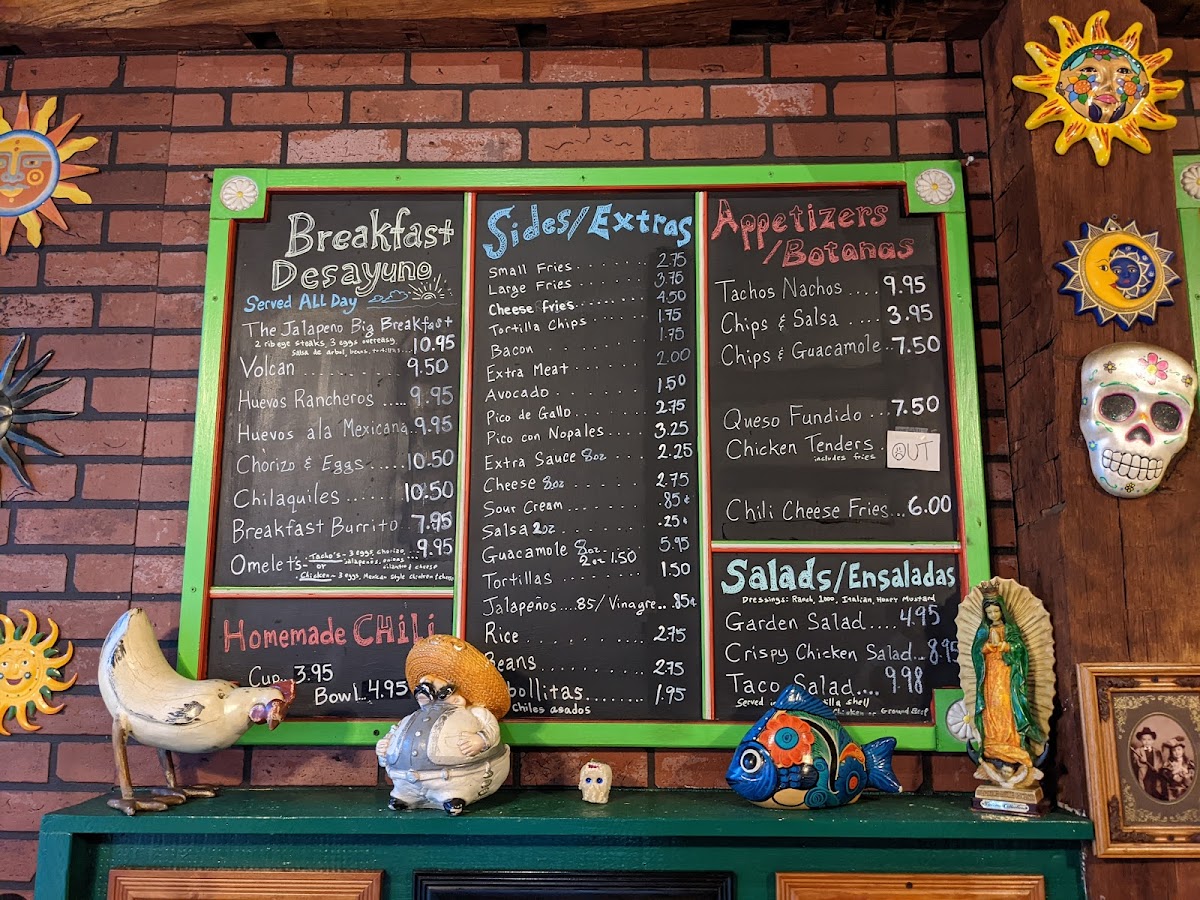 Breakfast
Desayuno
Served ALL Day
The Jalapeno Big Breakfast
2 rib eye steaks, 3 eggs overeasy, 10.95
Salsa de arbol, beans, tortillas...
Volcan ........... 9.50
Huevos Rancheros ..... 9.95
Huevos ala Mexicana. 9.95
Chorizo & Eggs ..... 10.50
Chilaquiles ...... 10.50
Breakfast Burrito .. 7.95
Omelets- Tacho's - 3 eggs, chorizo ... 9.95
or jalapeños, onions
cilantro & cheese
Chicken - 3 eggs, Mexican Style chicken & cheese
Homemade CHili
Cup...3.95
Bowl..4.95
Sides/Extras
Small Fries........ 2.75
Large Fries ........ 3.75
Cheese fries ........ 4.50
Tortilla Chips ...... 1.75
Bacon ........... 1.75
Extra Meat ........ 2.00
Avocado ......... 1.50
Pico de Gallo ....... 2.75
Pico con Nopales..... 3.25
Extra Sauce 8oz .... 2.25
Cheese 8oz ....... 2.75
Sour Cream ....... .85¢
Salsa 2oz ........ .25¢
Guacamole 8oz. ..... 5.95
2oz 1.50
Tortillas ......... 1.50
Jalapeños....85/Vinagre...85¢
Rice ........... 2.75
Beans .......... 2.75
bollitas......... 1.95
Chiles asados
Appetizers
/Botanas
Tachos Nachos .... 9.95
Chips & Salsa ..... 3.95
Chips & Guacamole.. 7.50
Queso Fundido ... 7.50
Chicken Tenders.. OUT
includes fries
Chili Cheese Fries... 6.00
Salads/Ensaladas
Dressings: Ranch, 1000, Italian, Honey Mustard
Garden Salad.... 4.95
Crispy Chicken Salad... 8.95
Taco Salad.... 9.98
Served shell
Chicken or Ground Beef